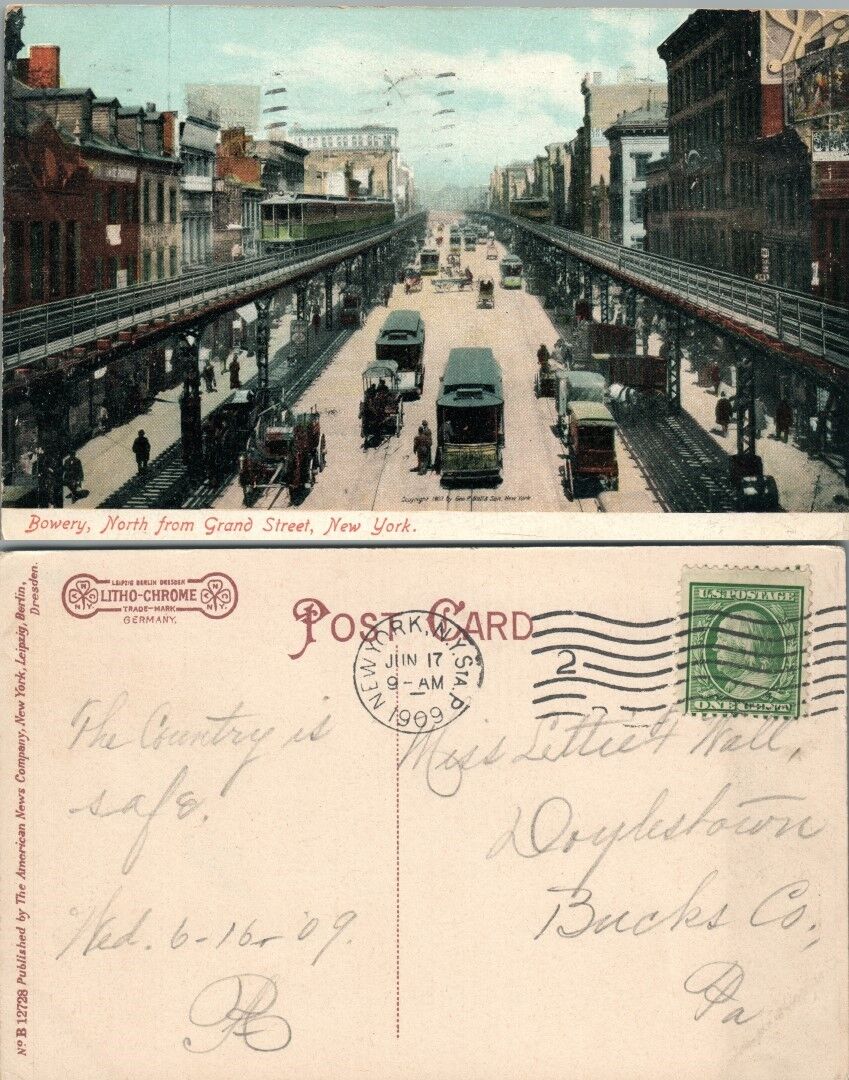 Copyright 1903 by Geo. P. Hall & Son, New York
Bowery, North from Grand Street, New York.
LEIPZIG BERLIN DRESDEN
LITHO-CHROME
TRADE-MARK
GERMANY.
N Y C
N Y C
POST CARD
NEW YORK, N.Y. STA. P
JUN 17
9-AM
1909
2
U.S. POSTAGE
ONE CENT
Nº B 12728 Published by The American News Company, New York, Leipzig, Berlin,
Dresden.
The Country is
safe.
Wed. 6-16-'09.
Miss Lettie Wall,
Doylestown
Bucks Co.,
Pa